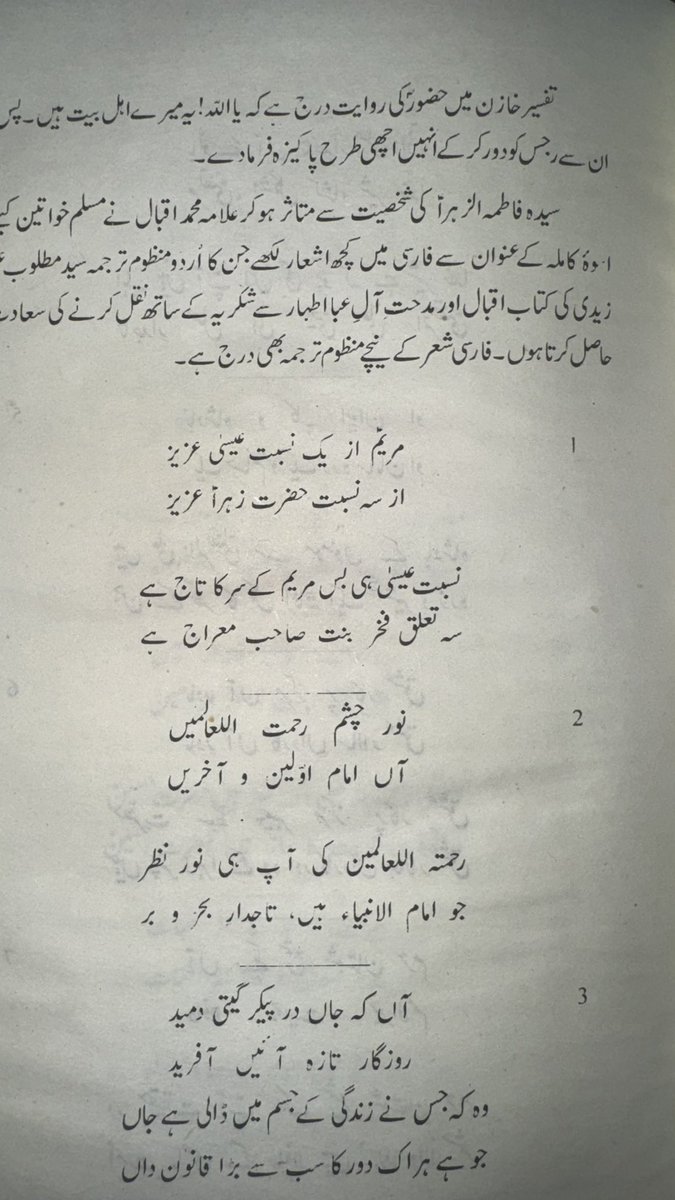 تفسیر خازن میں حضورؐ کی روایت درج ہے کہ یا اللہ! یہ میرے اہل بیت ہیں۔ پس
ان سے رجس کو دور کر کے انہیں اچھی طرح پاکیزہ فرما دے۔
سیدہ فاطمہ الزہراؑ کی شخصیت سے متاثر ہو کر علامہ محمد اقبال نے مسلم خواتین
اسوۂ کاملہ کے عنوان سے فارسی میں کچھ اشعار لکھے جن کا اُردو منظوم ترجمہ سید مطلوب
زیدی کی کتاب اقبال اور مدحت آلِ عبا اطہار سے شکریہ کے ساتھ نقل کرنے کی سعادت
حاصل کرتا ہوں۔ فارسی شعر کے نیچے منظوم ترجمہ بھی درج ہے۔
1
مریمؑ از یک نسبت عیسیٰ عزیز
از سہ نسبت حضرت زہراؑ عزیز
نسبت عیسیٰ ہی بس مریم کے سر کا تاج ہے
سہ تعلق فخر بنت صاحب معراج ہے
2
نور چشم رحمت اللعالمیں
آں امام اوّلین و آخریں
رحمتہ اللعالمین کی آپ ہی نور نظر
جو امام الانبیاء ہیں، تاجدارِ بحر و بر
3
آں کہ جاں در پیکر گیتی دمید
روزگار تازہ آئیں آفرید
وہ کہ جس نے زندگی کے جسم میں ڈالی ہے جاں
جو ہے ہر اک دور کا سب سے بڑا قانون داں